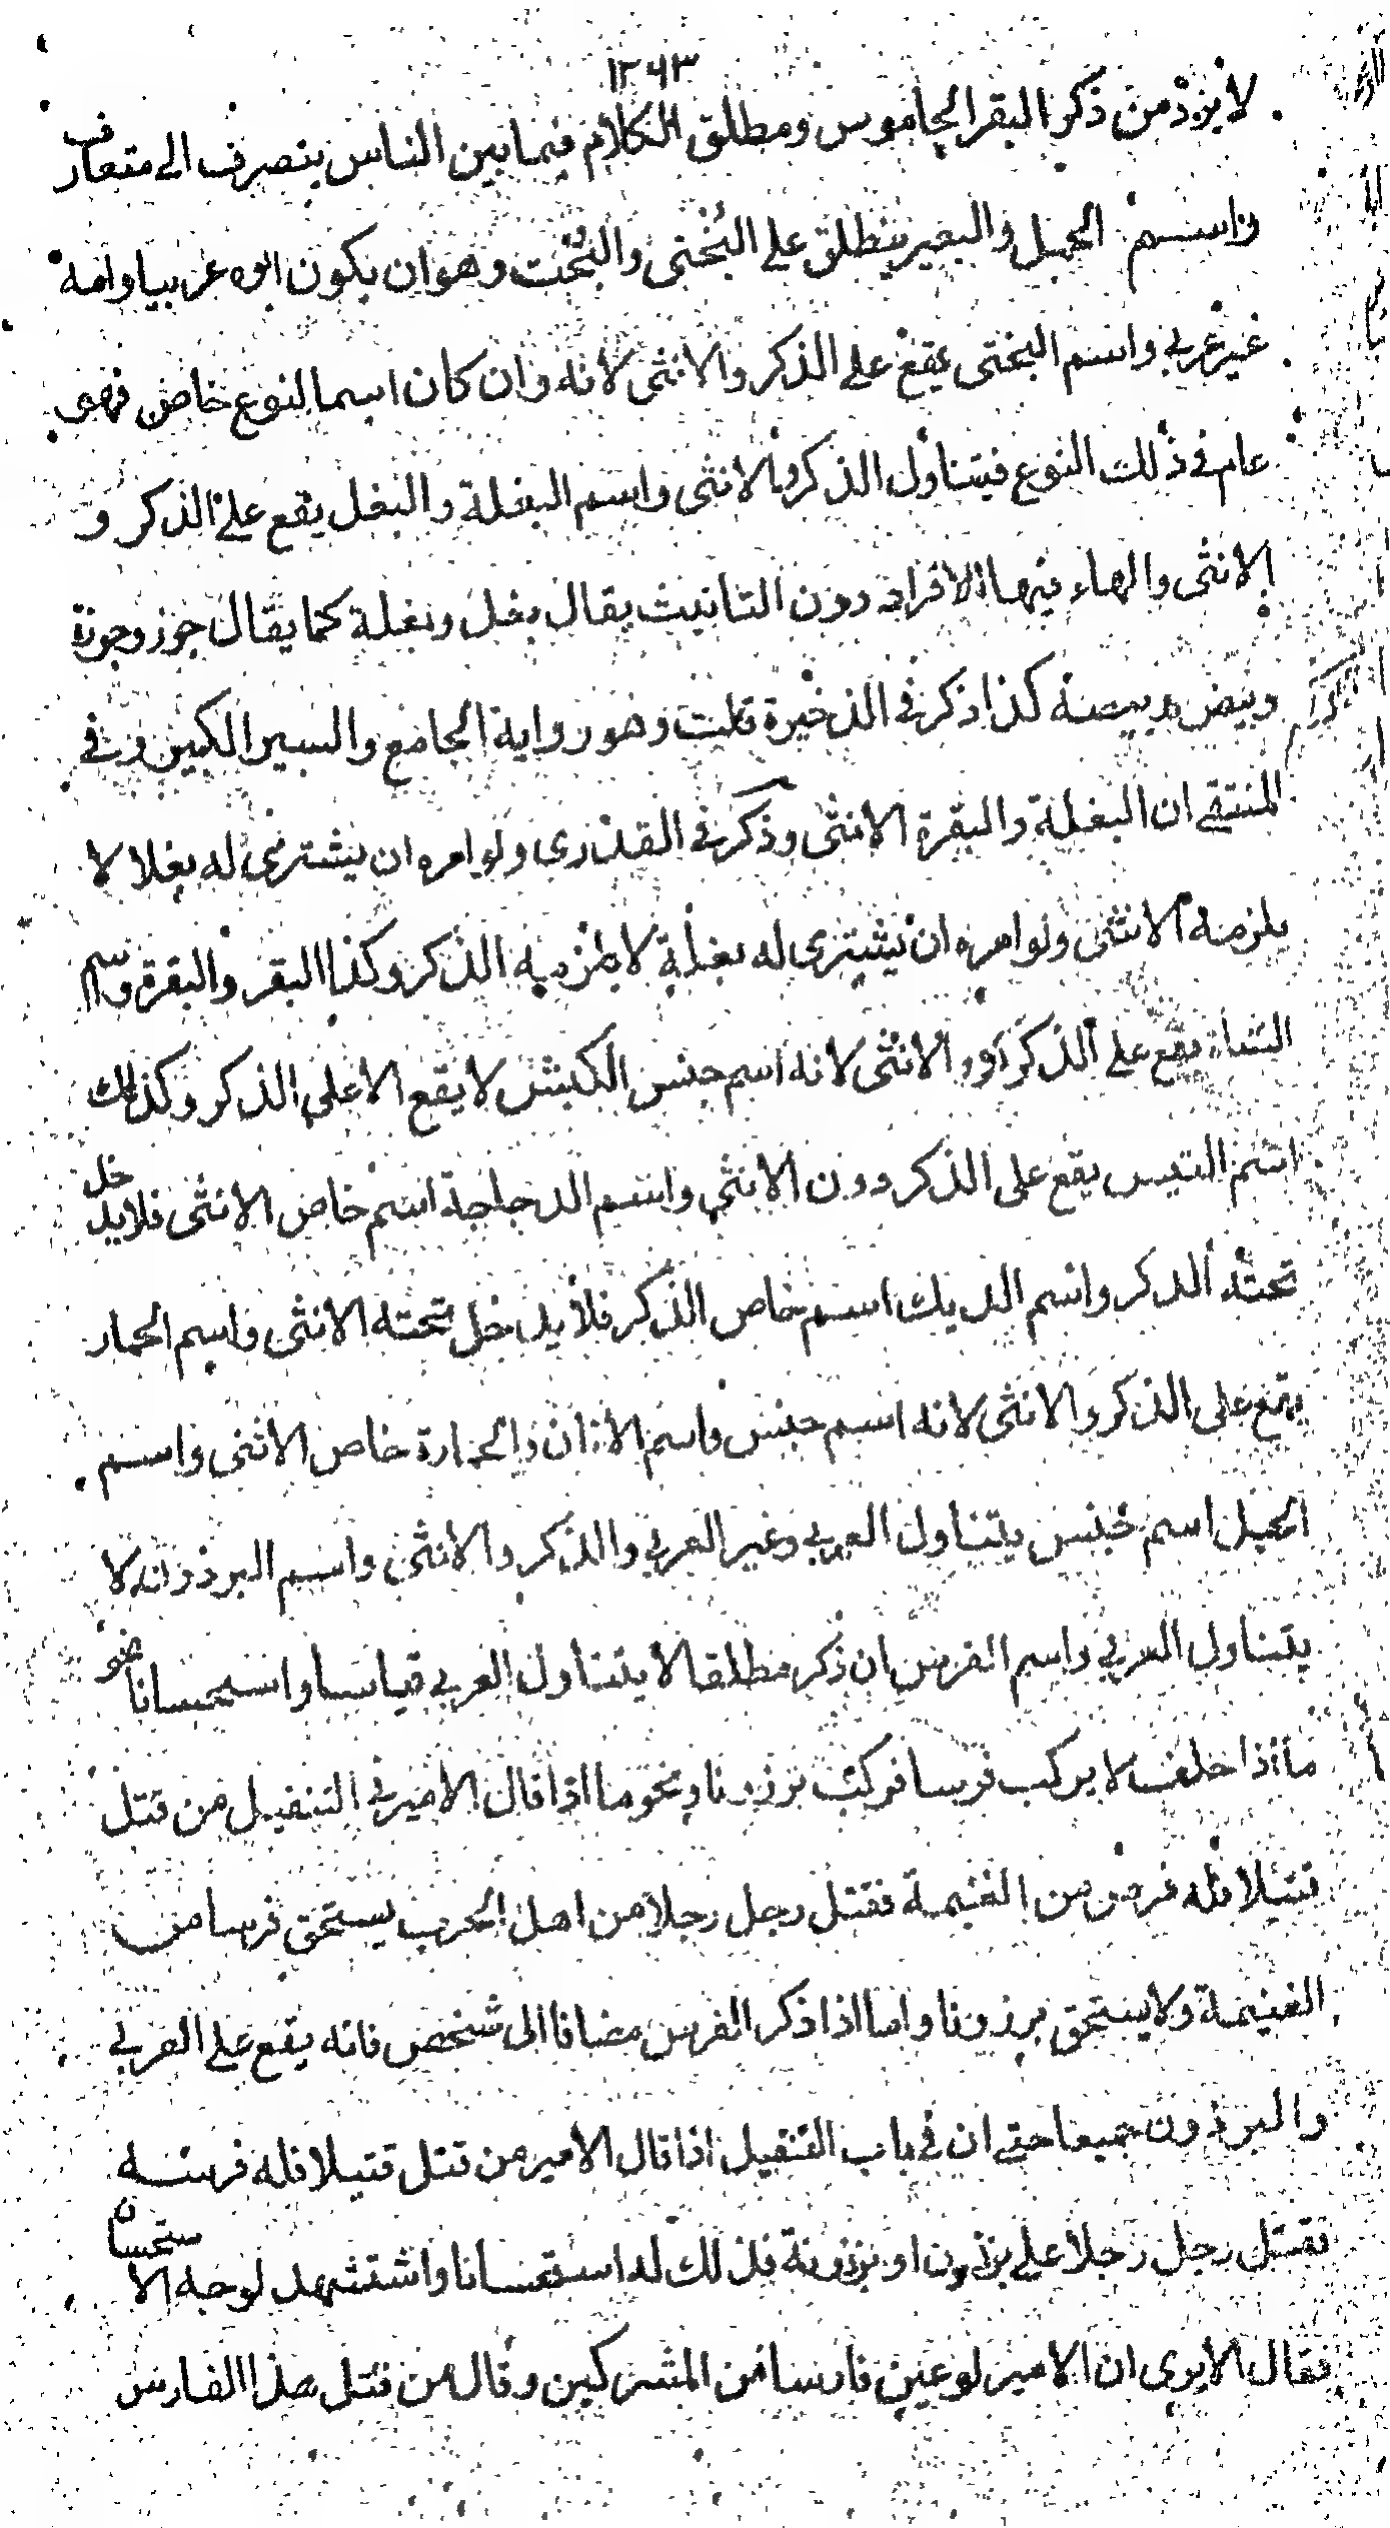 ١٢٩٣
لا يزد من ذكر البقر الجاموس ومطلق الكلام فيما بين الناس ينصرف الى متعارف
واسم الجمل والبعير ينطلق على البختى والبخت وهو ان يكون ابوه عربيا وامه
غير عربي واسم البختى يقع على الذكر والانثى لانه وان كان اسما لنوع خاص فهى
عام فى ذلك النوع فيتناول الذكر والانثى واسم البغلة والبغل يقع على الذكر و
الانثى والهاء فيها الافراد دون التانيث يقال بغل وبغلة كما يقال جوز وجوزة
وبيض وبيضة كذا ذكر فى الذخيرة قلت وهو رواية الجامع والسير الكبير وفى
المنتقى ان البغلة والبقرة الانثى وذكر فى القدرى ولو امره ان يشترى له بغلا لا
يلزمه الانثى ولو امره ان يشترى له بغلة لا يلزمه الذكر وكذا البقر والبقرة واسم
الشاة يقع على الذكر او الانثى لانه اسم جنس الكبش لا يقع الا على الذكر وكذلك
اسم التيس يقع على الذكر دون الانثى واسم الدجاجة اسم خاص الانثى فلا يدخل
تحته الذكر واسم الديك اسم خاص الذكر فلا يدخل تحته الانثى واسم الحمار
يقع على الذكر والانثى لانه اسم جنس واسم الاتان والحمارة خاص الانثى واسم
الخيل اسم جنس يتناول العربي وغير العربي والذكر والانثى واسم البرذونه لا
يتناول العربي واسم الفرس ان ذكر مطلقا لا يتناول العربي قياسا واستحسانا نحو
ما اذا حلف لا يركب فرسا فركب برذونا ونحو ما اذا قال الامير فى التنفيل من قتل
قتيلا فله فرس من الغنيمة فقتل رجل رجلا من اهل الحرب يستحق فرسا من
الغنيمة ولا يستحق برذونا واما اذا ذكر الفرس مضافا الى شخص فانه يقع على العربي
والبرذون جميعا حتى ان فى باب التنفيل اذا قال الامير من قتل قتيلا فله فرسه
فقتل رجل رجلا على برذون او برذونة فذلك له استحسانا واستشهد لوجه الاستحسان
فقال الا يرى ان الامير لو عين فارسا من المشركين وقال من قتل هذا الفارس